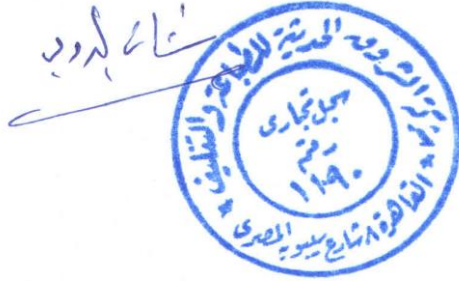 شركة الشروق الحديثة للطباعة والتغليف
سجل تجاري
رقم
١١٩٠
القاهرة ٨ شارع سيبويه المصري